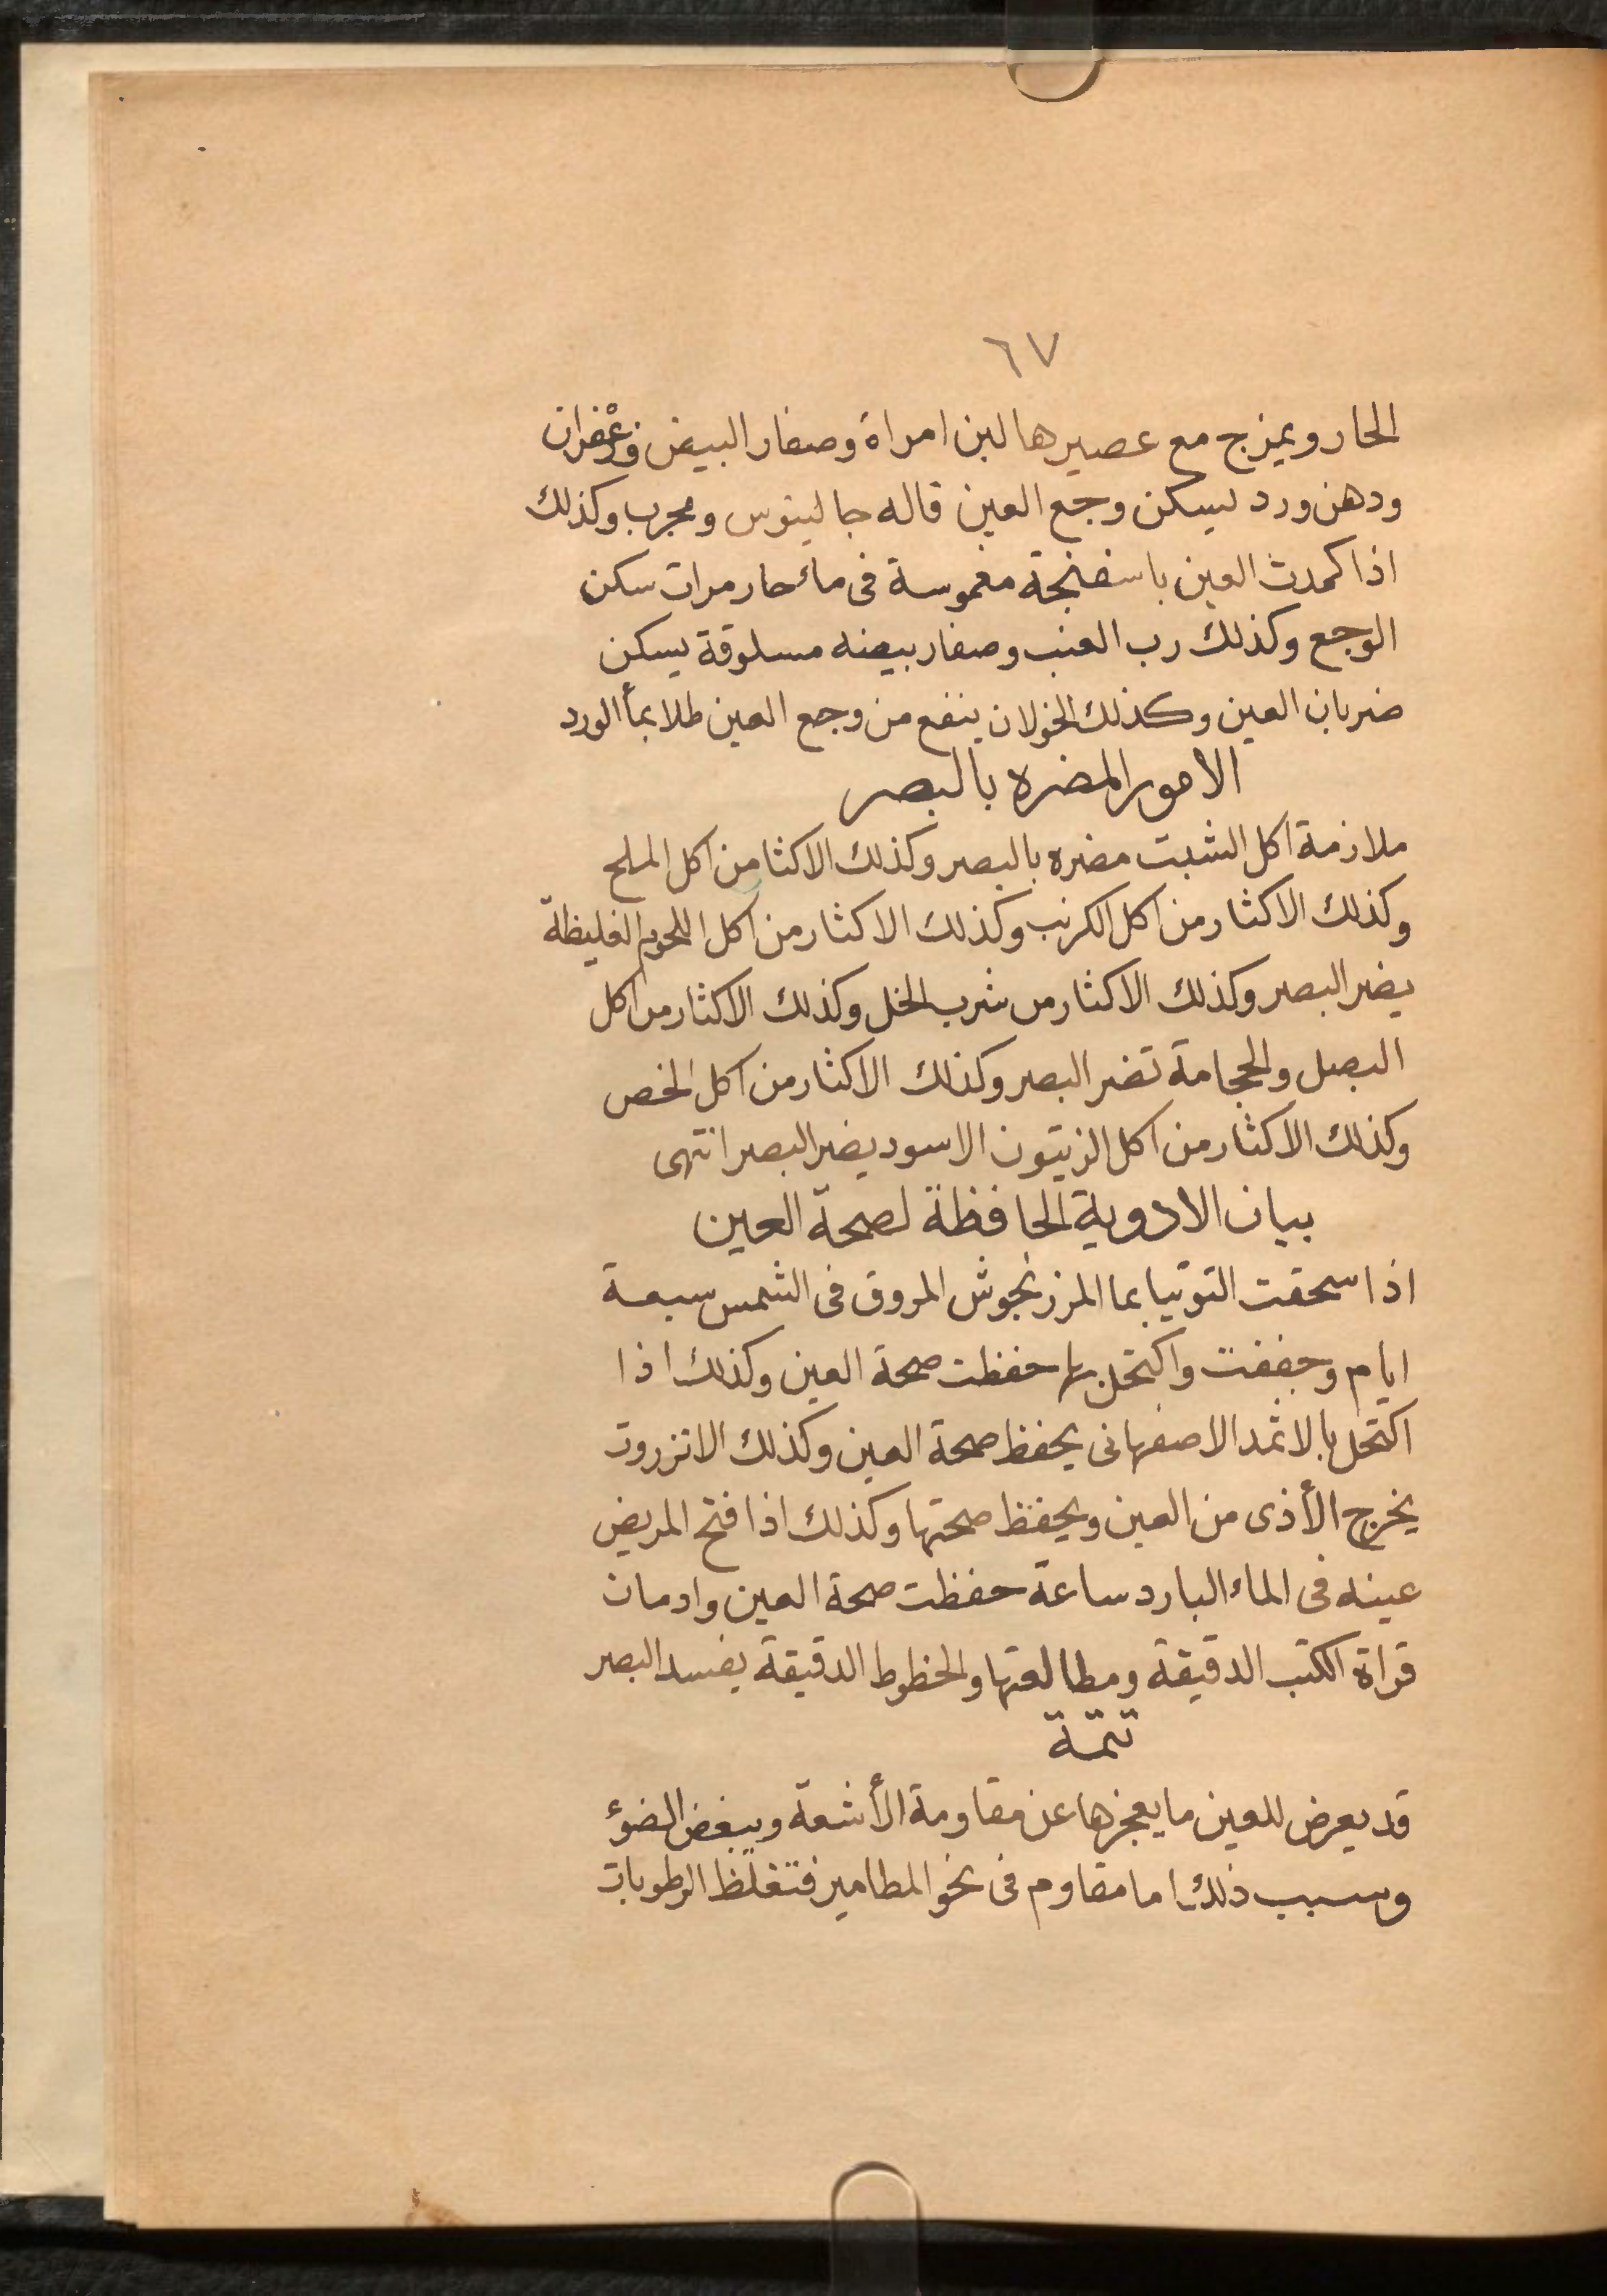 ٦٧
الحار ويمزج مع عصيرها لبن امراة وصفار البيض وزعفران
ودهن ورد ليسكن وجع العين قاله جالينوس ومجرب وكذلك
اذا كمدت العين باسفنجة مغموسة فى ماء حار مرات سكن
الوجع وكذلك رب العنب وصفار بيضه مسلوقة يسكن
ضربان العين وكذلك الخولان ينفع من وجع العين طلا بمأ الورد
الامور المضره بالبصر
ملازمة اكل الشبت مضره بالبصر وكذلك الاكثا من اكل الملح
وكذلك الاكثار من اكل الكرنب وكذلك الاكثار من اكل اللحوم الغليظة
يضر البصر وكذلك الاكثار من شرب الخل وكذلك الاكثار من اكل
البصل والحجامة تضر البصر وكذلك الاكثار من اكل الخص
وكذلك الاكثار من اكل الزيتون الاسود يضر البصر انتهى
بيان الادوية الحافظة لصحة العين
اذا سحقت التوتيا بما المرزنجوش المروق فى الشمس سبعة
ايام وجففت واكتحل بها حفظت صحة العين وكذلك اذا
اكتحل بالاثمد الاصفهانى يحفظ صحة العين وكذلك الانزروت
يخرج الأذى من العين ويحفظ صحتها وكذلك اذا فتح المريض
عينه فى الماء البارد ساعة حفظت صحة العين وادمان
قراة الكتب الدقيقة ومطالعتها والخطوط الدقيقة يفسد البصر
تتمة
قد يعرض للعين ما يعجزها عن مقاومة الأشعة ويبغض الضوء
وسبب ذلك اما مقاوم فى نحو المطامير فتغلظ الرطوبات